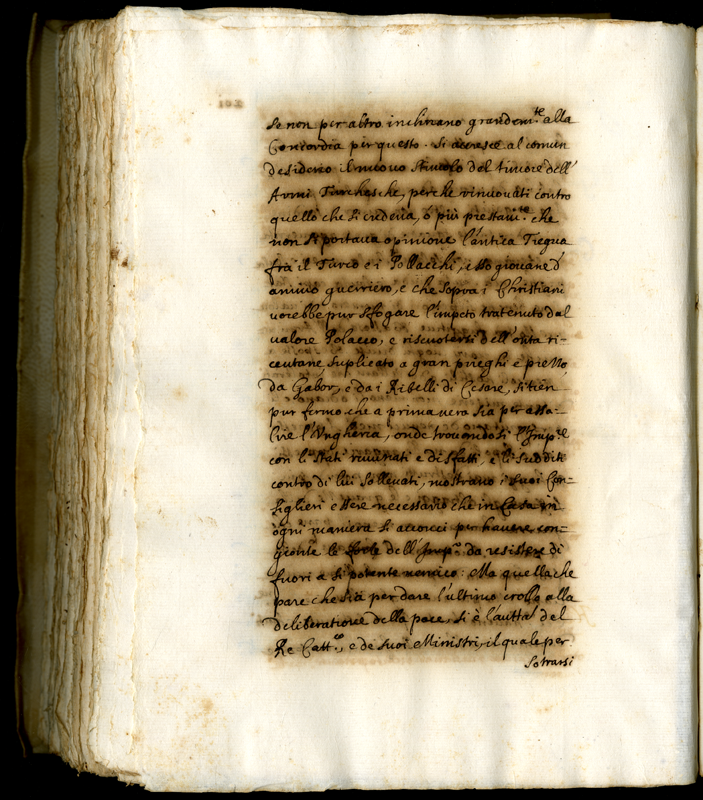 se non per altro inclinano grandem.te alla
Concordia per questo. Si accresce al comun
desiderio il nuovo stimolo del timore dell'
Armi Turchesche, perche rinuovati contro
quello che si credeua, ò piu prestam.te che
non si portaua opinione l'antica Tregua
frà il Turco e i Pollacchi, esso giouane d'
animo guerriero, e che sopra i Christiani
uorebbe pur sfogare l'impeto tratenuto dal
ualore Polacco, e riscuotersi dell'onta ri-
ceuta, e suplicato a gran prieghi e
da Gabor, e da i Ribelli di Cesare, si tien
pur fermo che a prima uera sia per assa-
lire l'Vngheria, onde trouandosi l'Imp.re
con li stati ruuinati e disfatti, e li sudditi
contro di lui solleuati, mostrano i suoi Con=
siglieri essere necessario che in Casa in
ogni maniera si accocci per hauere con=
le forze dell'Imp.o da resistere di
fuori a si potente nemico: Ma quella che
pare che sia per dare l'ultimo crollo alla
deliberatione della pace, si è l'auttà del
Re Catt.co, e de suoi Ministri, il quale per
sotrarsi